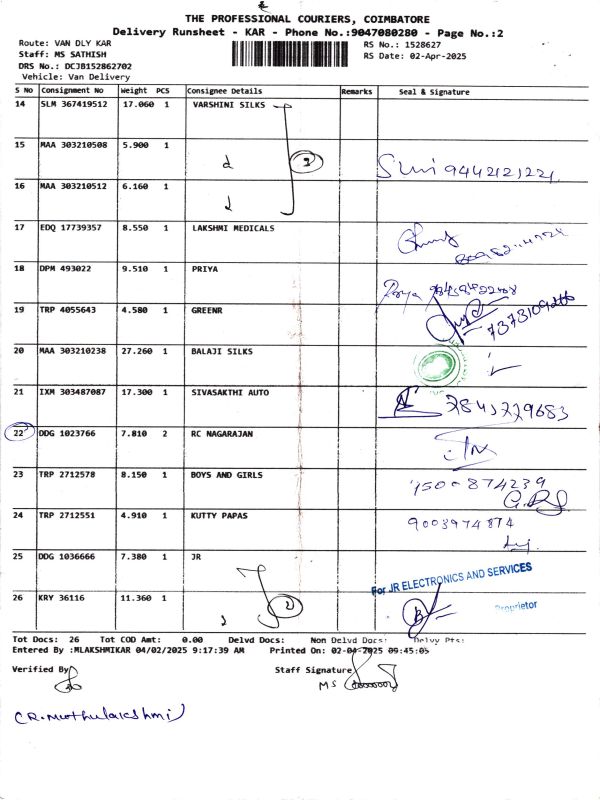 THE PROFESSIONAL COURIERS, COIMBATORE
Delivery Runsheet - KAR - Phone No.:9047080280 - Page No.:2
Route: VAN DLY KAR
RS No.: 1528627
Staff: MS SATHISH
RS Date: 02-Apr-2025
DRS No.: DCJB152862702
Vehicle: Van Delivery
S No Consignment No Weight PCS Consignee Details Remarks Seal & Signature
14 SLM 367419512 17.060 1 VARSHINI SILKS
15 MAA 303210508 5.900 1
9442121221
16 MAA 303210512 6.160 1
17 EDQ 17739357 8.550 1 LAKSHMI MEDICALS
18 DPM 493022 9.510 1 PRIYA
Priya
19 TRP 4055643 4.580 1 GREENR
7373109266
20 MAA 303210238 27.260 1 BALAJI SILKS
21 IXM 303487087 17.300 1 SIVASAKTHI AUTO
7845779683
22 DDG 1023766 7.810 2 RC NAGARAJAN
23 TRP 2712578 8.150 1 BOYS AND GIRLS
7500874239
24 TRP 2712551 4.910 1 KUTTY PAPAS
9003974874
25 DDG 1036666 7.380 1 JR
For JR ELECTRONICS AND SERVICES
26 KRY 36116 11.360 1
2
Proprietor
Tot Docs: 26 Tot COD Amt: 0.00 Delvd Docs: Non Delvd Docs: Delvy Pts:
Entered By :MLAKSHMIKAR 04/02/2025 9:17:39 AM Printed On: 02-04-2025 09:45:05
Verified By
Staff Signature
MS
CR. Muthulakshmi